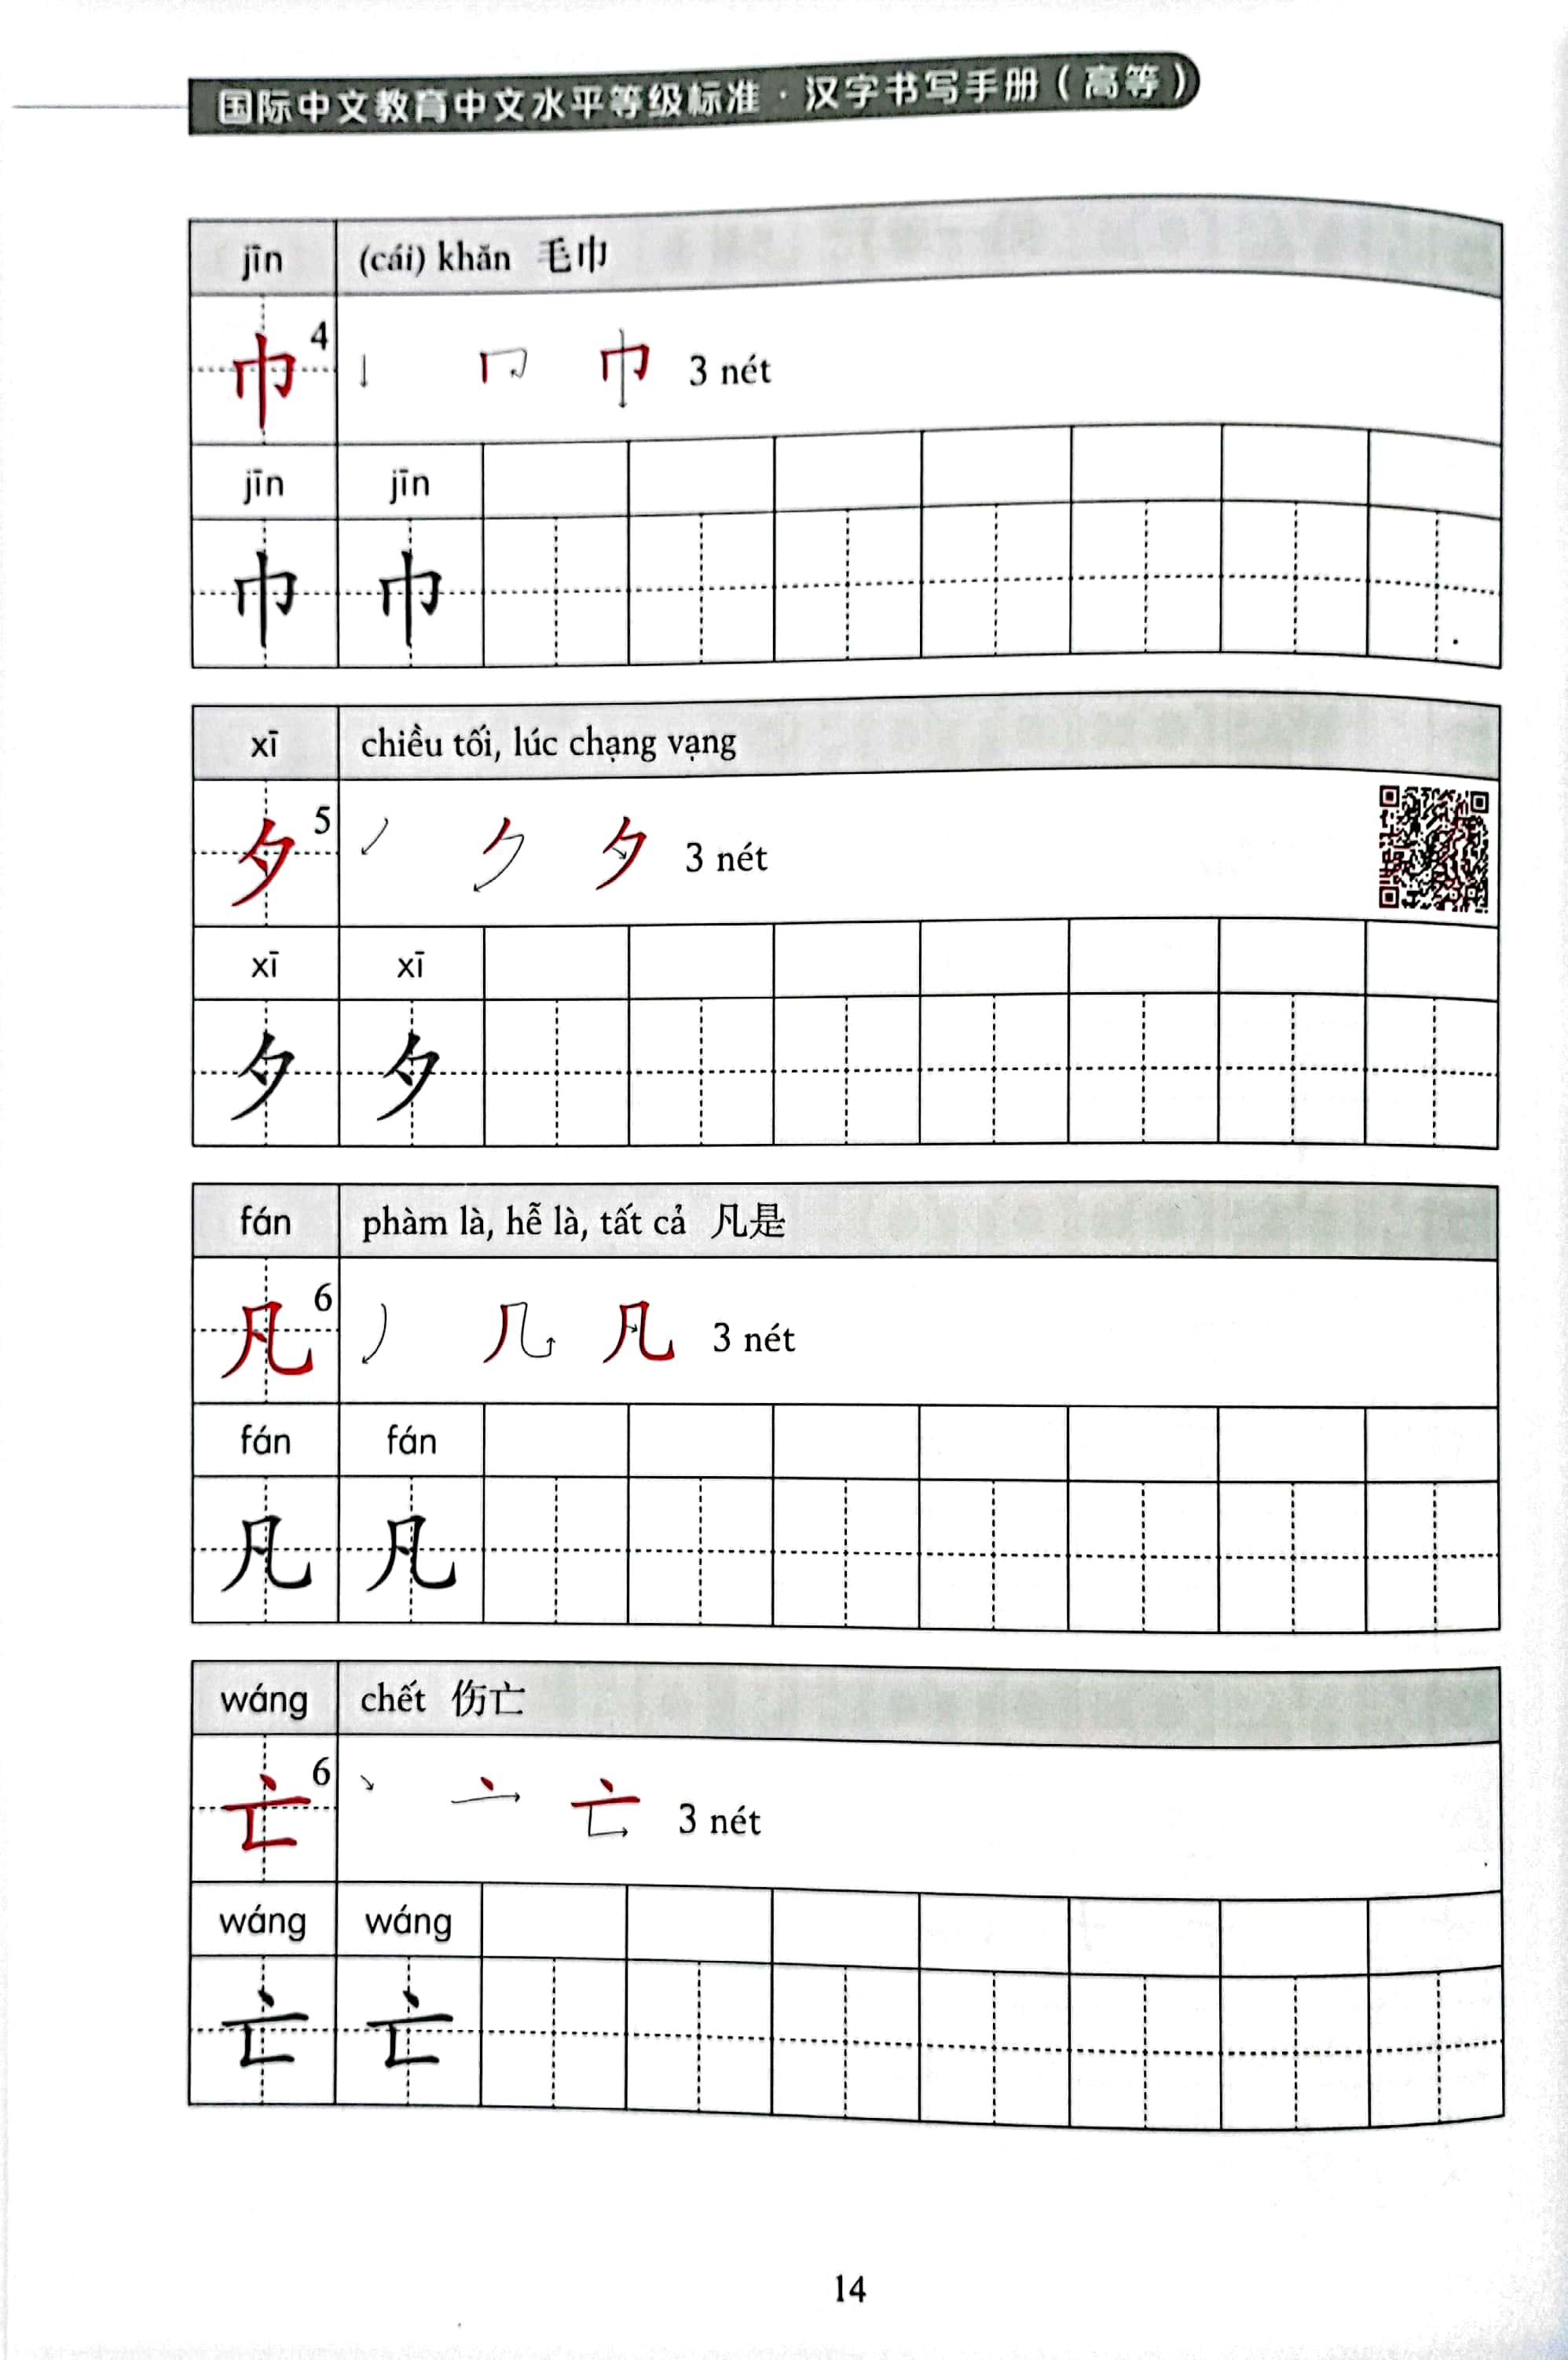 国际中文教育中文水平等级标准·汉字书写手册（高等）
jīn (cái) khăn 毛巾
巾 4 3 nét
jīn jīn
巾 巾
xī chiều tối, lúc chạng vạng
夕 5 3 nét
xī xī
夕 夕
fán phàm là, hễ là, tất cả 凡是
凡 6 3 nét
fán fán
凡 凡
wáng chết 伤亡
亡 6 3 nét
wáng wáng
亡 亡
14